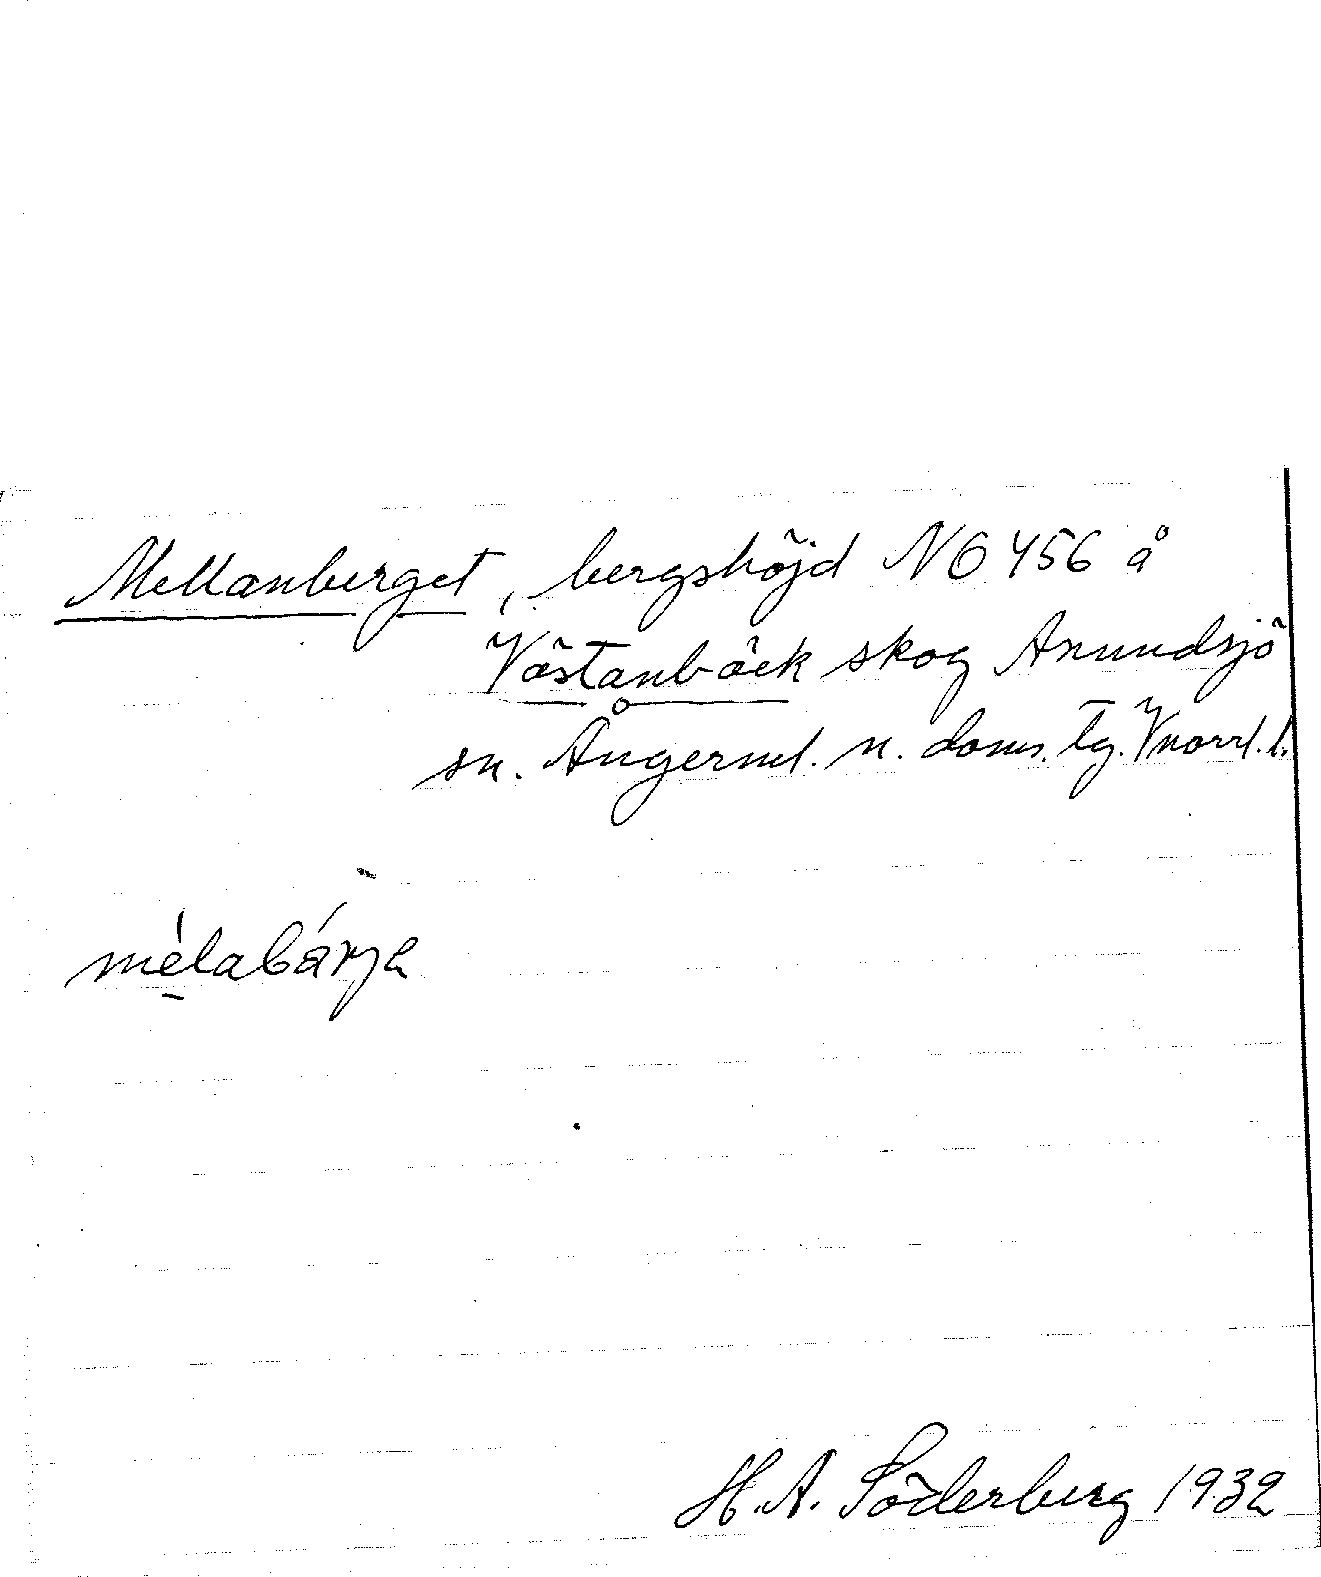 Mellanberget, bergshöjd NO 456 å
Västanbäck skog Anundsjö
sn. Ångerml. n. doms. tg. Vnorrl. l.
mèlabárja
H. A. Söderberg 1932